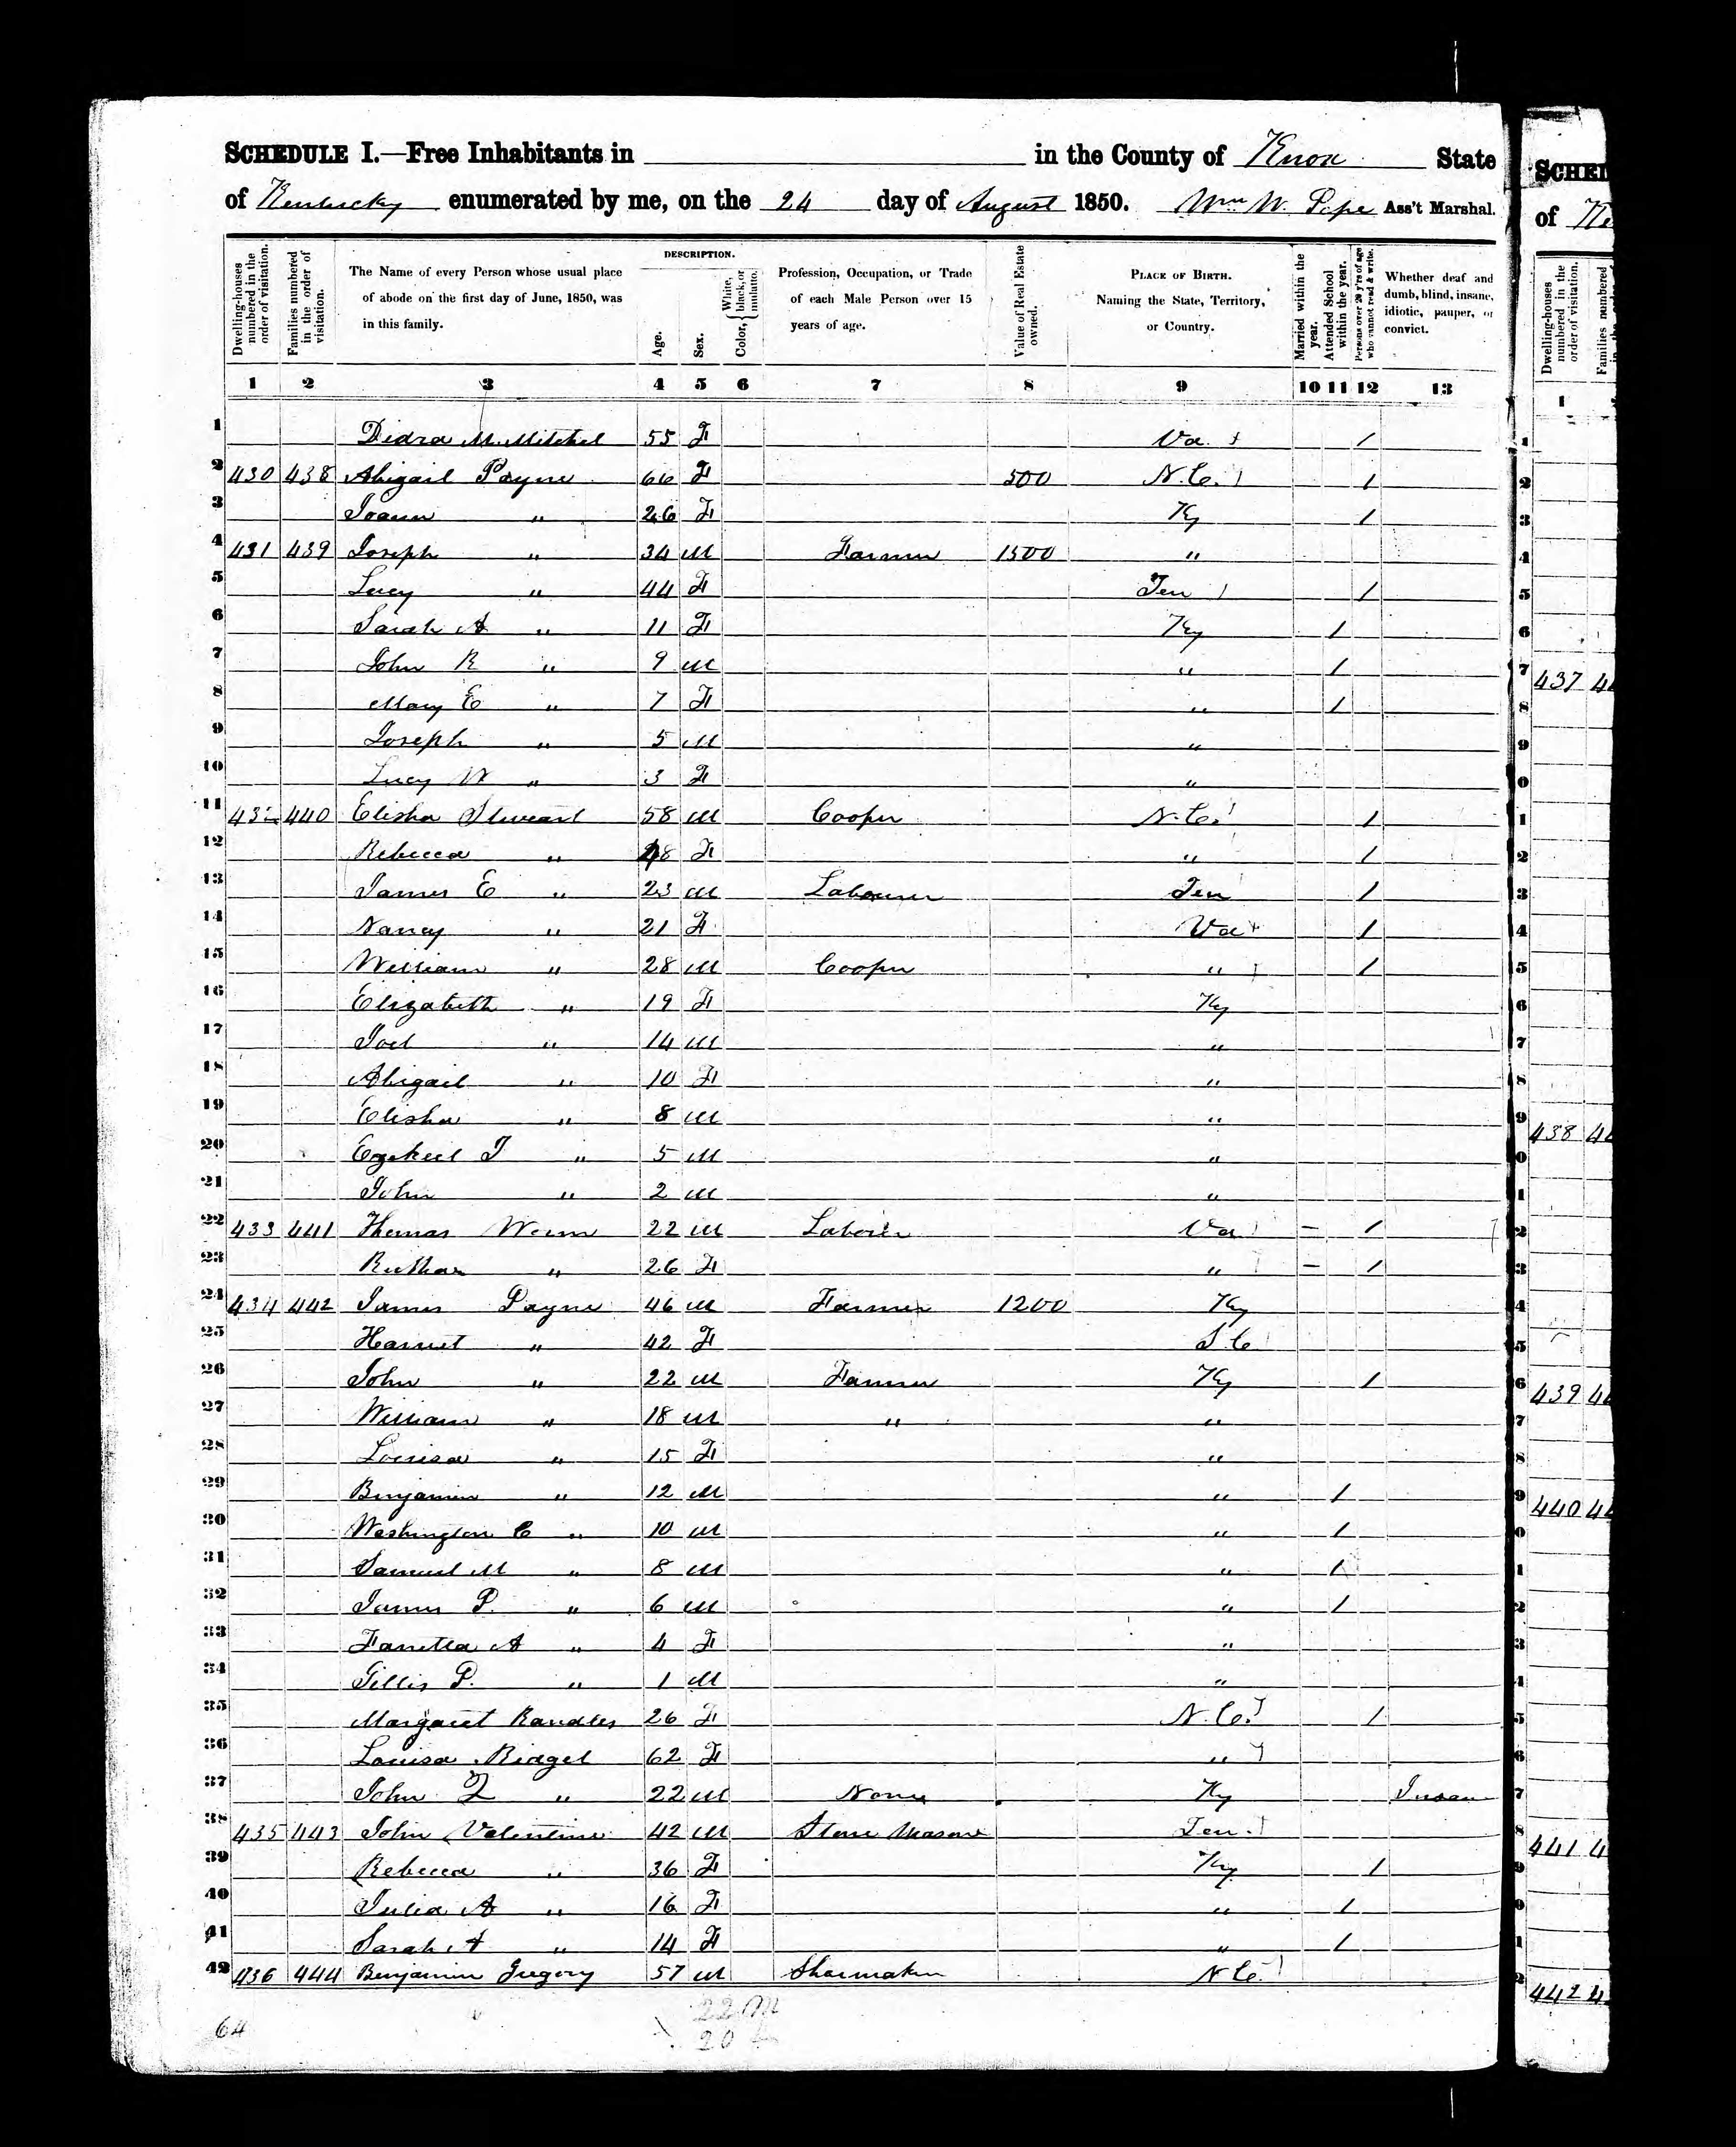 SCHEDULE I.—Free Inhabitants in in the County of Knox State
of Kentucky enumerated by me, on the 24 day of August 1850. Wm W. Pope Ass't Marshal.
Dwelling-houses numbered in the order of visitation.
Families numbered in the order of visitation.
The Name of every Person whose usual place of abode on the first day of June, 1850, was in this family.
DESCRIPTION.
Age.
Sex.
Color, { White, black, or mulatto.
Profession, Occupation, or Trade of each Male Person over 15 years of age.
Value of Real Estate owned.
PLACE OF BIRTH. Naming the State, Territory, or Country.
Married within the year.
Attended School within the year.
Persons over 20 y'rs of age who cannot read & write.
Whether deaf and dumb, blind, insane, idiotic, pauper, or convict.
1 2 3 4 5 6 7 8 9 10 11 12 13
1 M. Mitchel 55 F Va 1
2 430 438 Abigail Payne 66 F 500 N.C. 1
3 Joann " 26 F Ky 1
4 431 439 Joseph " 34 M Farmer 1500 "
5 Lucy " 44 F Ten 1
6 Sarah A " 11 F Ky 1
7 John R " 9 M " 1
8 Mary E " 7 F " 1
9 Joseph " 5 M "
10 Lucy W " 3 F "
11 432 440 Elisha Stweart 58 M Cooper N.C. 1
12 Rebecca " 48 F " 1
13 James E " 23 M Labourer Ten 1
14 Nancy " 21 F Va 1
15 William " 28 M Cooper " 1
16 Elizabeth " 19 F Ky
17 Joel " 14 M "
18 Abigail " 10 F "
19 Elisha " 8 M "
20 Ezekiel T " 5 M "
21 John " 2 M "
22 433 441 Thomas 22 M Laborer Va – 1
23 " 26 F " – 1
24 434 442 James Payne 46 M Farmer 1200 Ky
25 Harriet " 42 F S.C
26 John " 22 M Farmer Ky 1
27 William " 18 M " "
28 Louisa " 15 F "
29 Benjamin " 12 M " 1
30 Washington C " 10 M " 1
31 Samuel M " 8 M " 1
32 James P. " 6 M " 1
33 A " 4 F "
34 Gillis P. " 1 M "
35 Margaret Randles 26 F N.C. 1
36 Louisa 62 F "
37 John " 22 M None Ky Insan
38 435 443 John Valentine 42 M Stone Mason Ten.
39 Rebecca " 36 F Ky 1
40 Julia A " 16 F " 1
41 Sarah A " 14 F " 1
42 436 444 Benjamin Gregory 57 M Shoemaker N.C.
64
22 M
20 f
SCHED
of Ke
Dwelling-houses numbered in the order of visitation.
Families numbered
1
437 44
438 44
439 44
440 44
441 4
442 4